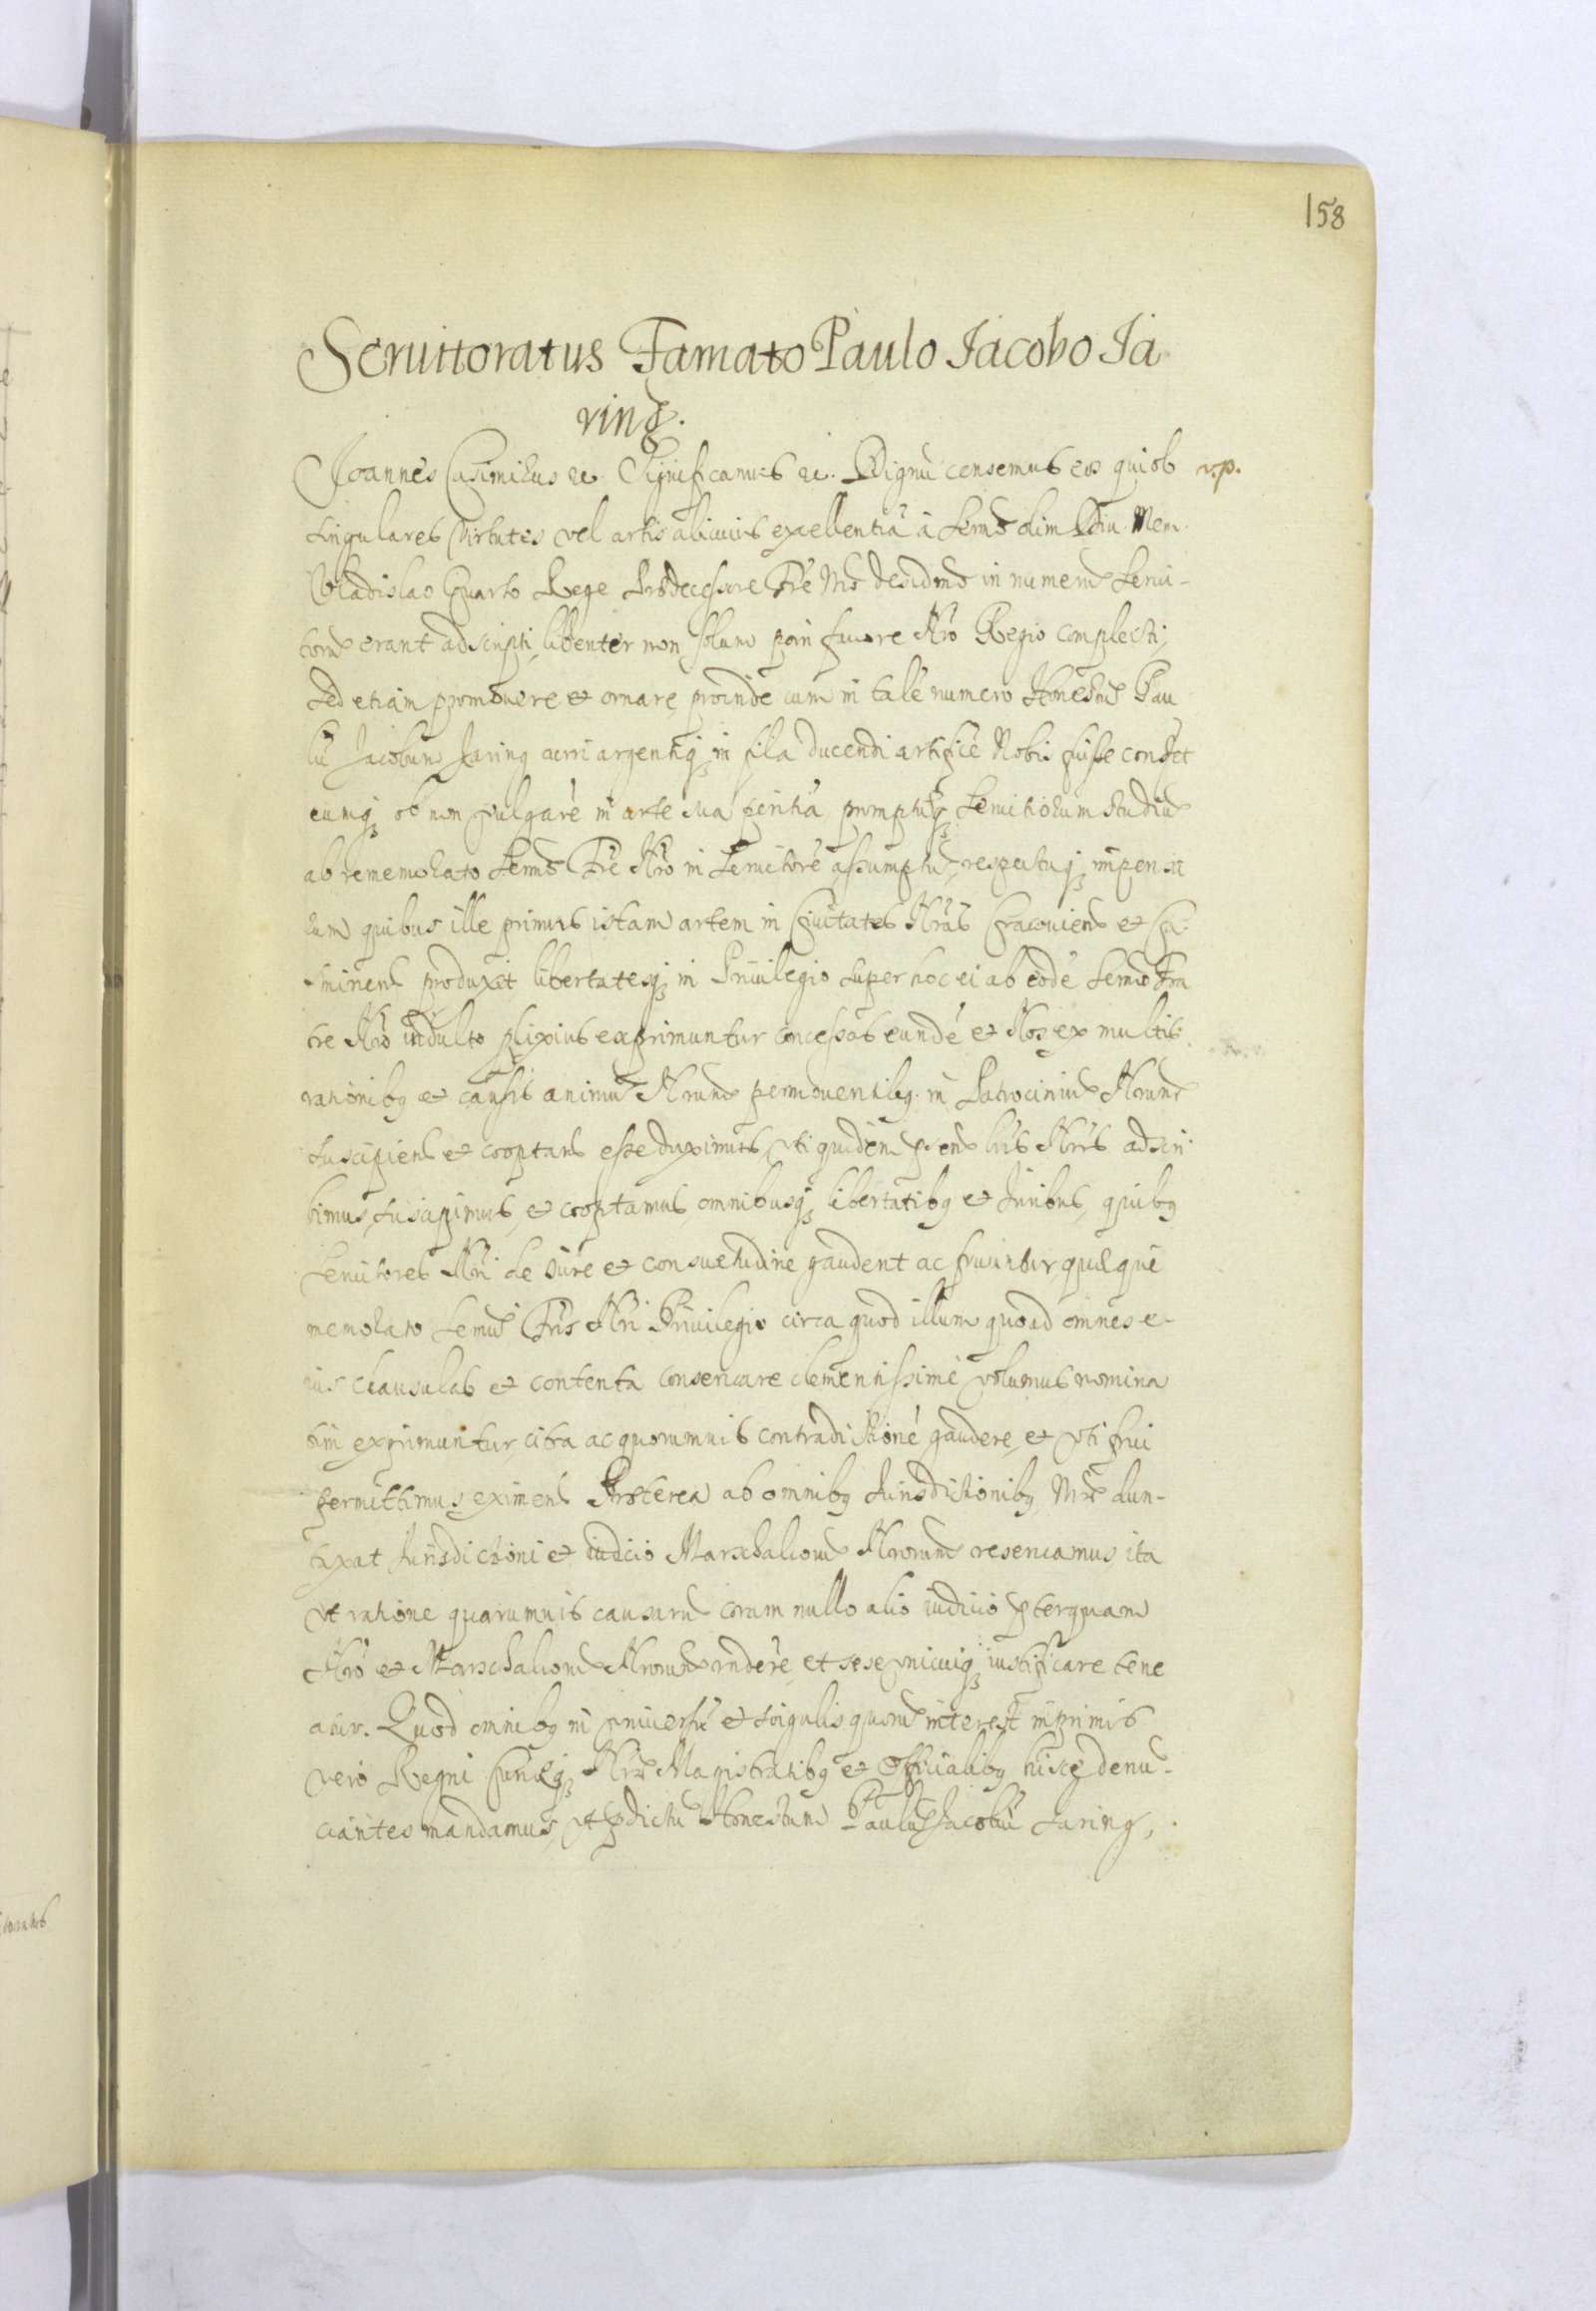 158
Seruitoratus Famato Paulo Iacobo Ia
ring.
Joannes Casimirus etc. Significamus etc. Dignũ censemus eos qui ob r.p.
singulares virtutes vel artis alicuius excellentiã à Sermo olim Diu. Mem.
Vladislao Quarto Rege Prædecessore Fre Nro desidmo in numerũ Serui-
torũ erant adscripti, libenter non solum pari fauore Nro Regio complecti,
sed etiam promouere et ornare, proinde cum in talé numero Honestus Pau
lũ Jacobum Jaring auri argentiq in fila ducendi artificé Nobis fuisse constet
eumq ob non vulgaré in arte sua peritiã, promptuq seruitiorum studiũ
ab rememorato Sermo Fre Nro in Seruitoré assumptũ, respectuq impensa
rum quibus ille primus istam artem in Ciuitates Nras Cracouiens et Ca-
simiriens produxit libertatesq in Priuilegio super hoc ei ab eodé Sermo Fra
tre Nro indulto plixius exprimuntur concessas eundé et Nos ex multis
rationibq et causis animũ Nrum permouentibq in Patrociniũ Nrum
suscipiens et cooptans esse duximus, vti quidem psens lris Nris adscri
bimus, suscipimus, et cooptamus, omnibusq libertatibq et Juribus, quibq
Seruitores Nri de iure et consuetudine gaudent ac fruuntur, quæque
memorato Sermi Fris Nri Priuilegio circa quod illum quoad omnes e-
ius clausulas et contenta conseruare clementissimè volumus nomina
tim exprimuntur, citra ac quorumuis contradictioné gaudere, et vti frui
permittimus, eximens Præterea ab omnibq Jurisdictionibq, Nræ dun-
taxat Jurisdictioni et iudicio Marschalcorũ Nrorum reseruamus, ita
vt ratione quarumuis causarũ coram nullo alio iudicio pterquam
Nro et Marschalcorũ Nrorum rndere, et sese vnicuiq iustificare tene
atur. Quod omnibq in vniuersũ et singulis quorũ interest, inprimis
vero Regni Curiæq Nræ Magistratibq et Officialibq hisce denũ-
ciantes mandamus, vt pdictũ Honestum Paulũ Jacobũ Jaring,